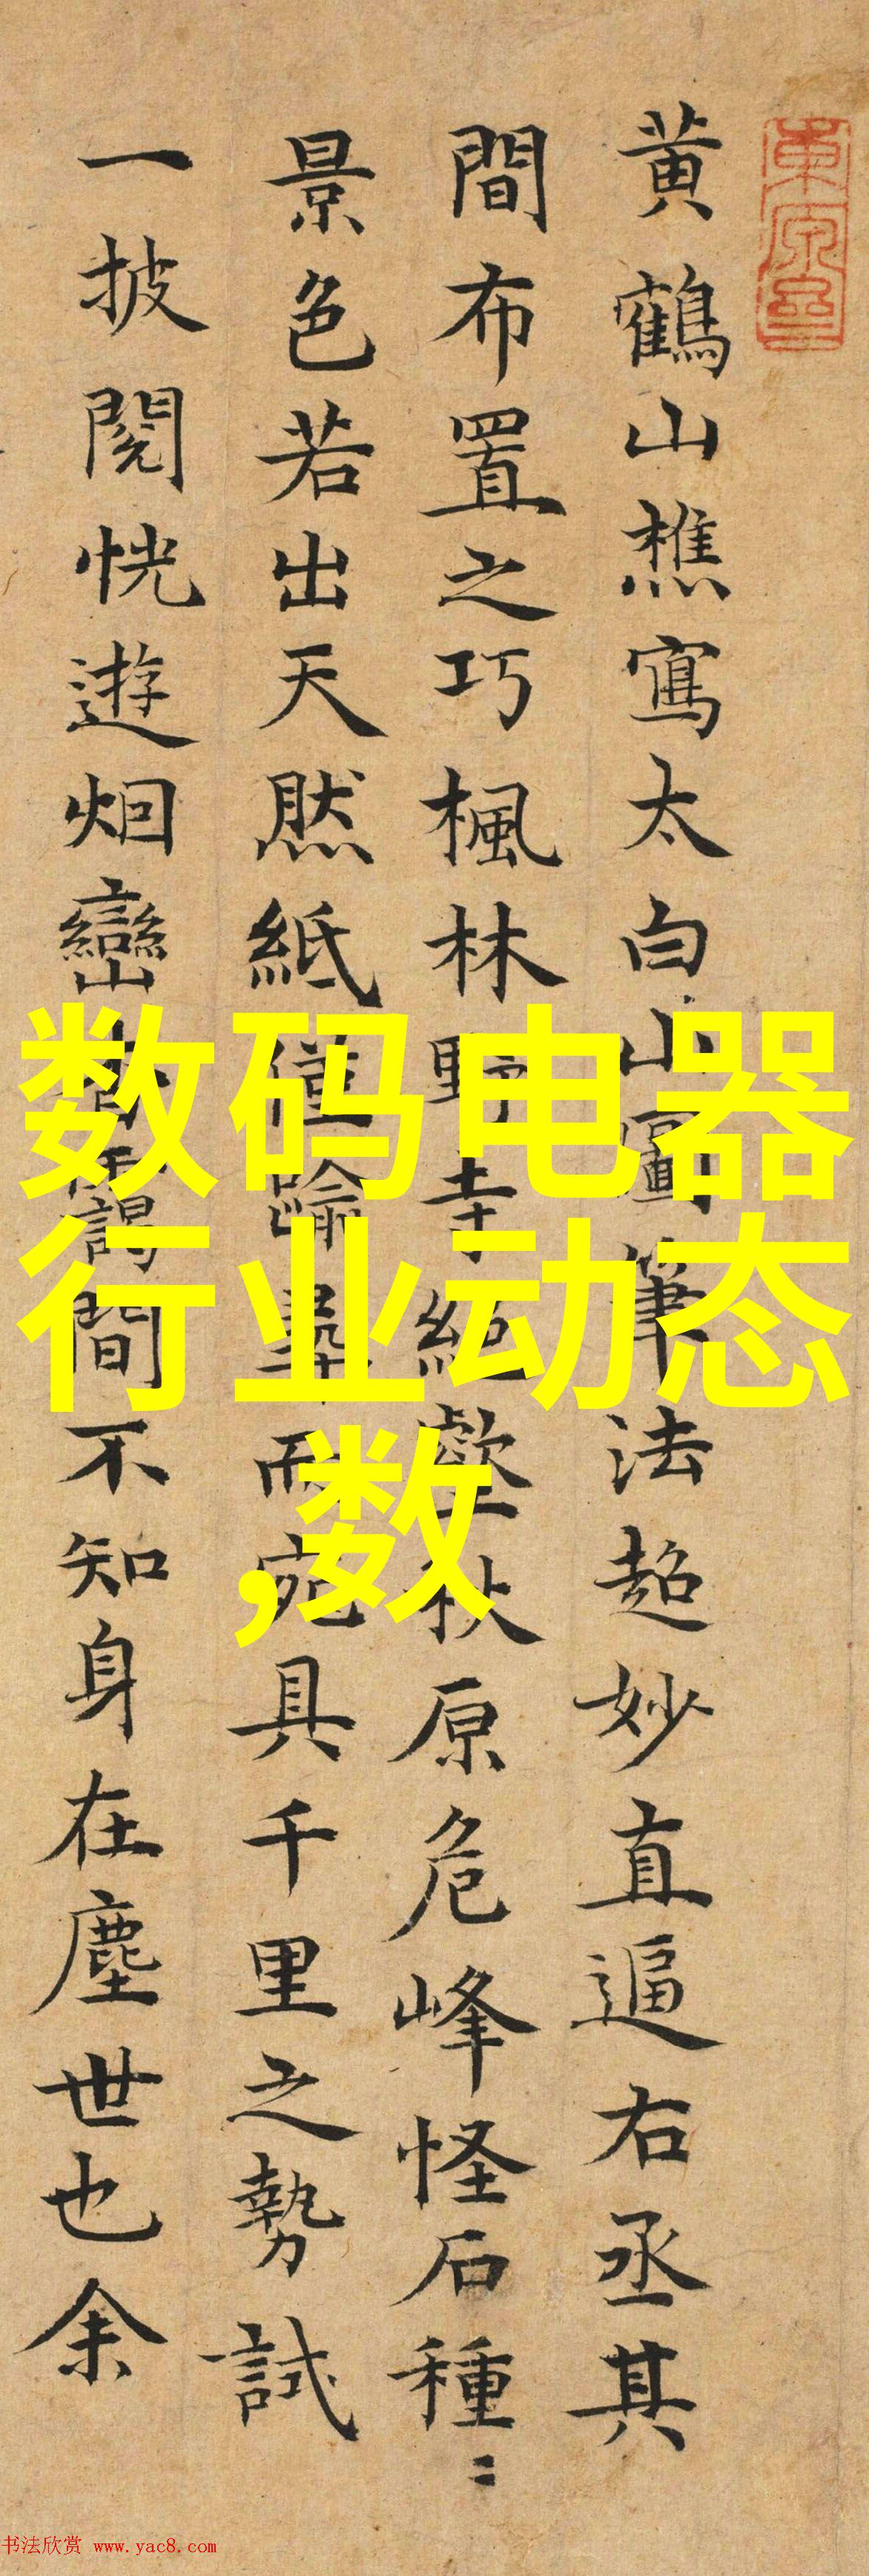 黄鶴山樵寫太白山圖筆法超妙直逼右丞其
間布置之巧楓林野寺絕壑秋原危峰怪石種〻
景色若出天然紙僅踰尋而宛具千里之勢試
一披閱恍遊烟巒杳靄間不知身在塵世也余
数码电器
行业动态
,数
书法欣赏 www.yac8.com